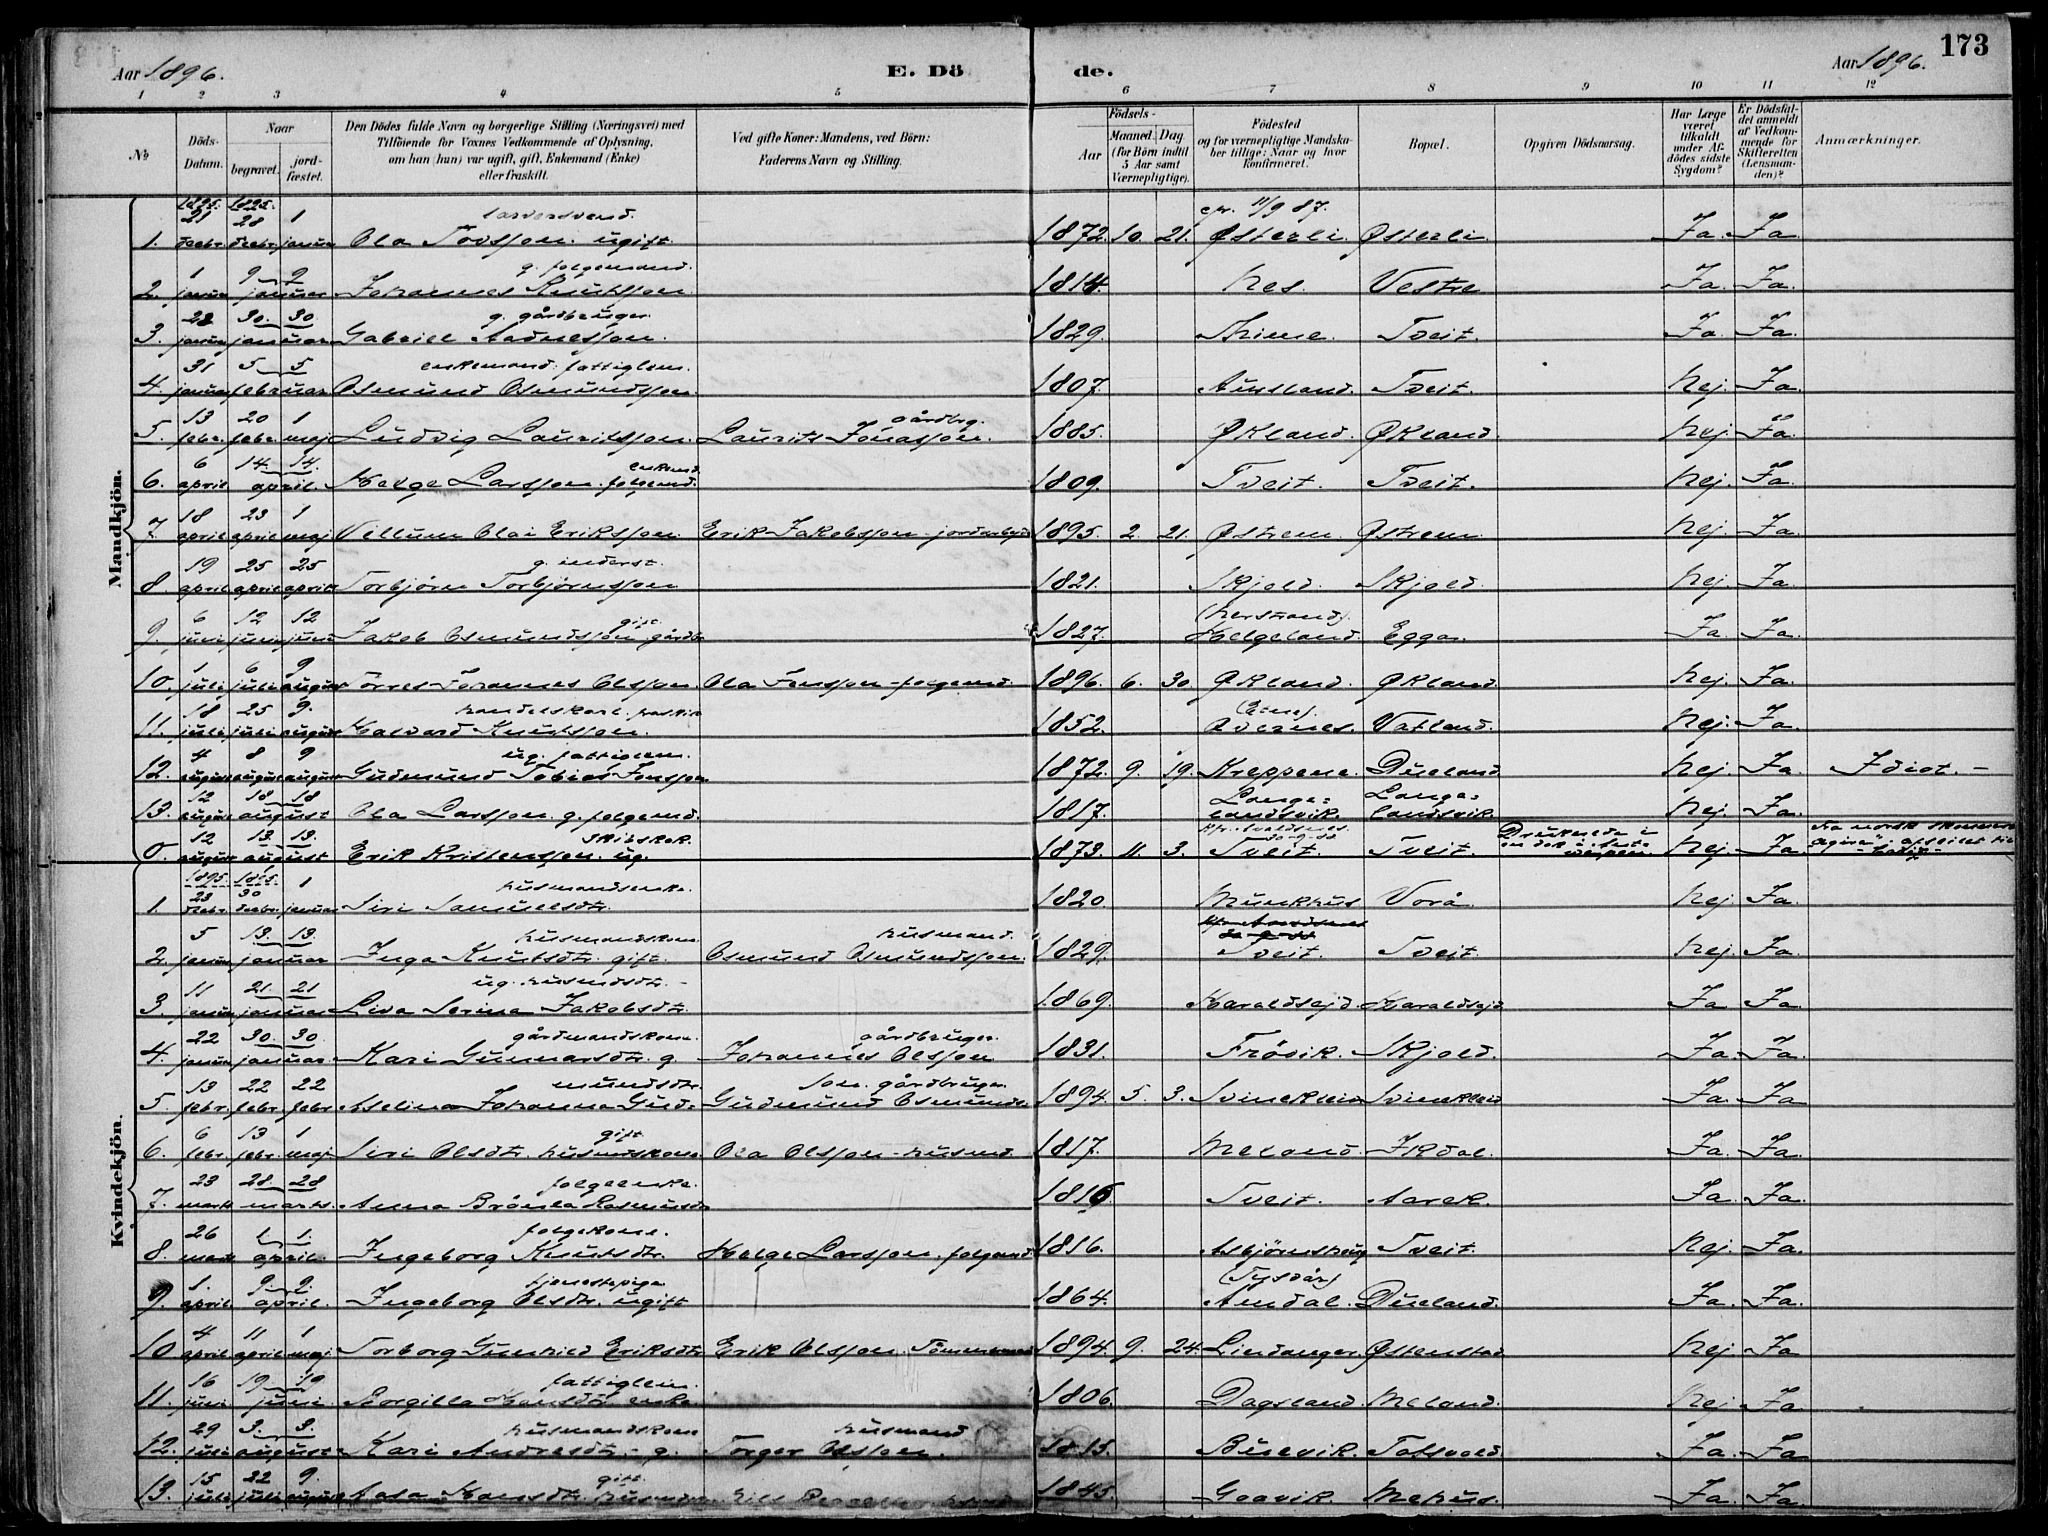 173
Aar 1896.
E. Döde.
Aar 1896.
1 2 3 4 5 6 7 8 9 10 11 12
№
Döds-Datum.
Naar
begravet.
jord-fæstet.
Den Dödes fulde Navn og borgerlige Stilling (Næringsvei) med
Tilföiende for Voxnes Vedkommende af Oplysning,
om han (hun) var ugift, gift, Enkemand (Enke)
eller fraskilt.
Ved gifte Koner: Mandens, ved Börn:
Faderens Navn og Stilling.
Födsels-
Aar
Maaned. Dag.
(for Börn indtil
5 Aar samt
Værnepligtige).
Födested
og for værnepligtige Mandska-
ber tillige: Naar og hvor
Konfirmeret.
Bopæl.
Opgiven Dödsaarsag.
Har Læge
været
tilkaldt
under Af-
dödes sidste
Sygdom?
Er Dödsfal-
det anmeldt
af Vedkom-
mende for
Skifteretten
(Lensman-
den)?
Anmærkninger.
Mandkjön.
1895. 1895. cfr. 11/9 87.
1. 21 decbr. 28 decbr. 1 januar Ola Tovsson. ugift. 1872. 10. 21. Østerli. Østerli. Ja. Ja.
g. folgemand.
2. 1 januar 9 9 januar Johannes Knutsson. 1814. Nes. Vestre Ja. Ja.
g. gårdbruger.
3. 22 januar 30. 30. januar Gabriel Andresson. 1829. Thime. Tveit. Ja. Ja.
enkemand. fattiglem.
4. 31 januar 5 5 februar Osmund Osmundsson. 1807. Aursland. Tveit. Nej. Ja.
gårdbrg.
5. 13 febr. 20 febr. 1 maj Ludvig Lauritsson. Laurits Jonasson. 1885. Økland. Økland. Nej. Ja.
enkemd.
6. 6 april 14. 14. april. Helge Larsson. folgemd. 1809. Tveit. Tveit. Nej. Ja.
7. 18 april 23 april 1 maj Villum Olai Eriksson. Erik Jakobsson. 1895. 2. 21. Østrem. Østrem. Nej. Ja.
g. inderst.
8. 19 april 25 april 25 april Torbjørn Torbjørnsson 1821. Skjold. Skjold. Nej. Ja.
gift. (Nerstrand).
9. 6 juni 12 juni 12 juni Jakob Osmundsson. gårdbr. 1827. Helgeland. Eggar. Ja. Ja.
10. 1 juli 6 juli 9 august Torres Johannes Olsson. Ola Jensson - folgemd. 1896. 6. 30. Økland. Økland. Nej. Ja.
handelskarl. (Etne).
11. 18 juli 25 juli 9. august Halvard Knutsson. 1852. Vatland. Nej. Ja.
ug. fattiglem.
12. 4 august 8 august 9 august Gudmund Tobias Jonsson. 1872. 9. 19. Kreppene. Dueland Nej. Ja. Idiot. -
13. 12 august 18 18 august Ola Larsson. g. folgemd. 1817. Langelandsvik. Langelandsvik. Nej. Ja.
skibskok.
0. 12 august 13. 13. august Erik Kristensson. ug. 1873. 11. 3. Tveit. Tveit. Druknede i en dok i Antwerpen. Nej. Ja.
Kvindekjön.
1895. 1895. husmandsenke.
1. 23 decbr. 30 decbr. 1 januar Siri Samuelsdtr. 1820. Munkhus Vorå. Nej Ja.
husmandskone. husmand.
2. 5 januar 13. 13. januar Inga Knutsdtr. gift. Osmund Osmundsson. 1829. Tveit. Tveit. Nej. Ja.
ug. husmdsdtr.
3. 11 januar 21. 21 januar Lisa Serina Jakobsdtr. 1869. Haraldsejd. Haraldsejd Ja Ja.
gårdmandskone. gårdbruger.
4. 22 januar 30. 30. januar Kari Gunnarsdtr. g. Johannes Olsson 1831. Frøvik. Skjold. Ja. Ja.
mundsdtr. son. gårdbruger.
5. 13 febr. 22 febr. 22 febr Aselina Johanna Gud- Gudmund Osmunds- 1894. 5. 3. Svinekleiv Svinekleiv Ja. Ja
gift.
6. 6 febr. 13 febr. 1 maj Siri Olsdtr. husmdskone Ola Olsson - husmd. 1817. Meland. Ikdal. Ja. Ja.
folgeenke.
7. 23 marts 28. 28 marts. Anna Brönla Rasmusdtr 1816. Tveit. Aarek. Ja. Ja.
folgekone.
8. 26 marts 1 1. april. Ingeborg Knutsdtr. Helge Larsson. folgemd. 1816. Asbjørnsteig Tveit. Nej. Ja.
tjenestepige (Tysvær)
9. 1. april. 9. 9. april. Ingeborg Olsdtr. ugift 1864. Amdal. Dueland. Ja. Ja.
10 4 april 11 april 1 maj Torborg Gunhild Eriksdtr Erik Olsson. Tømmermand 1894. 9. 24. Lindanger. Østenstad Nej Ja
fattiglem.
11. 16 juni 19 19 juni. Borgilla Hansdtr. enke 1806. Dagsland. Meland. Nej Ja.
husmandskone husmand
12. 29 juli 3. 3. august Kari Andresdtr. - g. Torger Olsson. 1815. Buevik. Totsvold. Ja. Ja.
gift.
13. 15 juli 22 juli 9. august Aasa Hansdtr. 1845. Gaavik. Mehus. Ja. Ja.